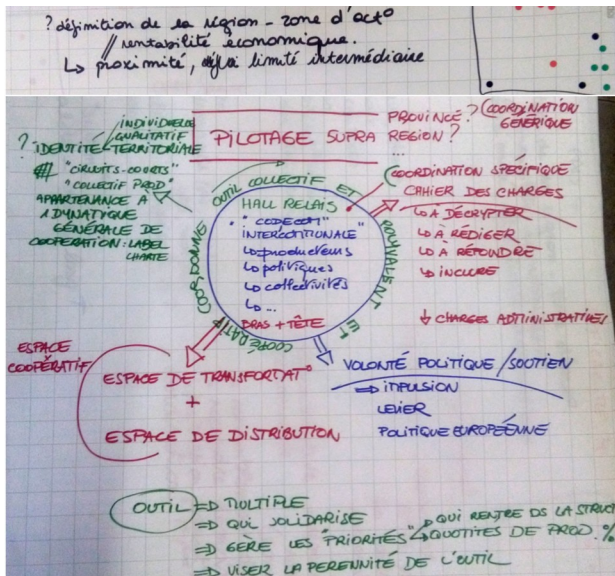 ? définition de la région - zone d'act°
// rentabilité économique.
↳ proximité, limité intermédiaire
PROVINCE? (COORDINATION
GÉNÉRIQUE
PILOTAGE SUPRA REGION?
...
? IDENTITÉ
INDIVIDUELLE
QUALITATIF
TERRITORIALE
# "CIRCUITS-COURTS"
"COLLECTIF PROD"
APPARTENANCE À
1 DYNATIQUE
GÉNÉRALE DE
COOPERATION: LABEL
CHARTE
OUTIL COLLECTIF ET
POLYVALENT ET
COOPÉRATIF
COORDONNÉ
HALL RELAIS
"CODECOM"
INTERCOTTUNALE"
↳ producteurs
↳ politiques
↳ collectivités
↳ ...
BRAS + TÊTE
COORDINATION SPÉCIFIQUE
CAHIER DES CHARGES
↳ À DÉCRYPTER
↳ À RÉDIGER
↳ À RÉPONDRE
↳ INCLURE
↓ CHARGES ADTINISTRATIVES
ESPACE
COOPÉRATIF
ESPACE DE TRANSFORTAT°
+
ESPACE DE DISTRIBUTION
VOLONTÉ POLITIQUE / SOUTIEN
⇒ ITPULSION
LEVIER
POLITIQUE EUROPÉENNE
OUTIL ⇒ TULTIPLE
⇒ QUI SOLIDARISE
⇒ GÈRE LES "PRIORITÉS" QUI RENTRE DS LA STRUCT
QUOTITES DE PROD. %
⇒ VISER LA PERENNITÉ DE L'OUTIL